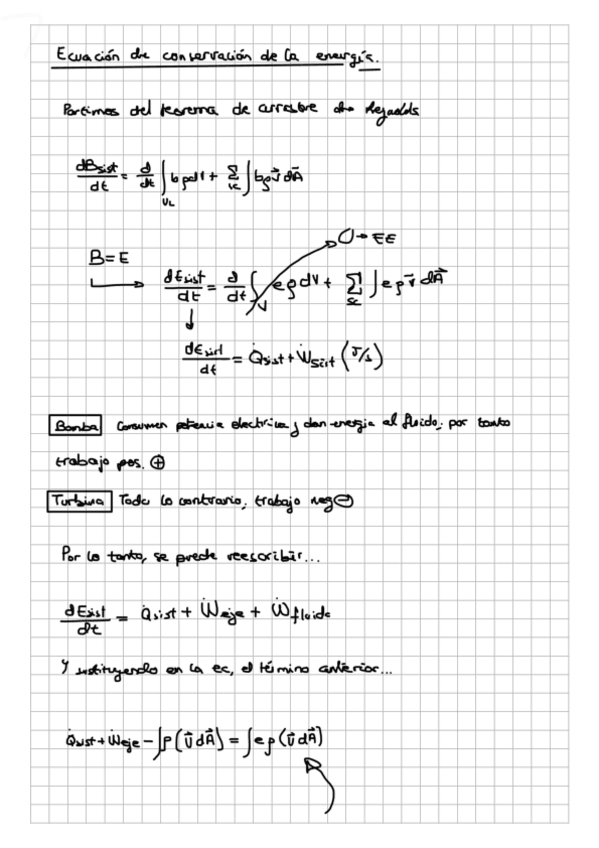 Ecuación de conservación de la energía.
Partimos del teorema de arrastre de Reynolds
dBsist/dt = d/dt ∫VC bρdV + ΣSC ∫ bρv⃗ dA⃗
0 → EE
B = E
dEsist/dt = d/dt ∫V eρdV + ΣSC ∫ eρv⃗ dA⃗
dEsist/dt = Q̇sist + Ẇsist (J/s)
Bomba Consumen potencia electrica y dan energia al fluido; por tanto
trabajo pos. ⊕
Turbina Todo lo contrario; trabajo neg ⊖
Por lo tanto, se puede reescribir...
dEsist/dt = Q̇sist + Ẇeje + Ẇfluido
Y sustituyendo en la ec, el término anterior...
Q̇sist + Ẇeje - ∫P(v⃗dA⃗) = ∫eρ(v⃗dA⃗)